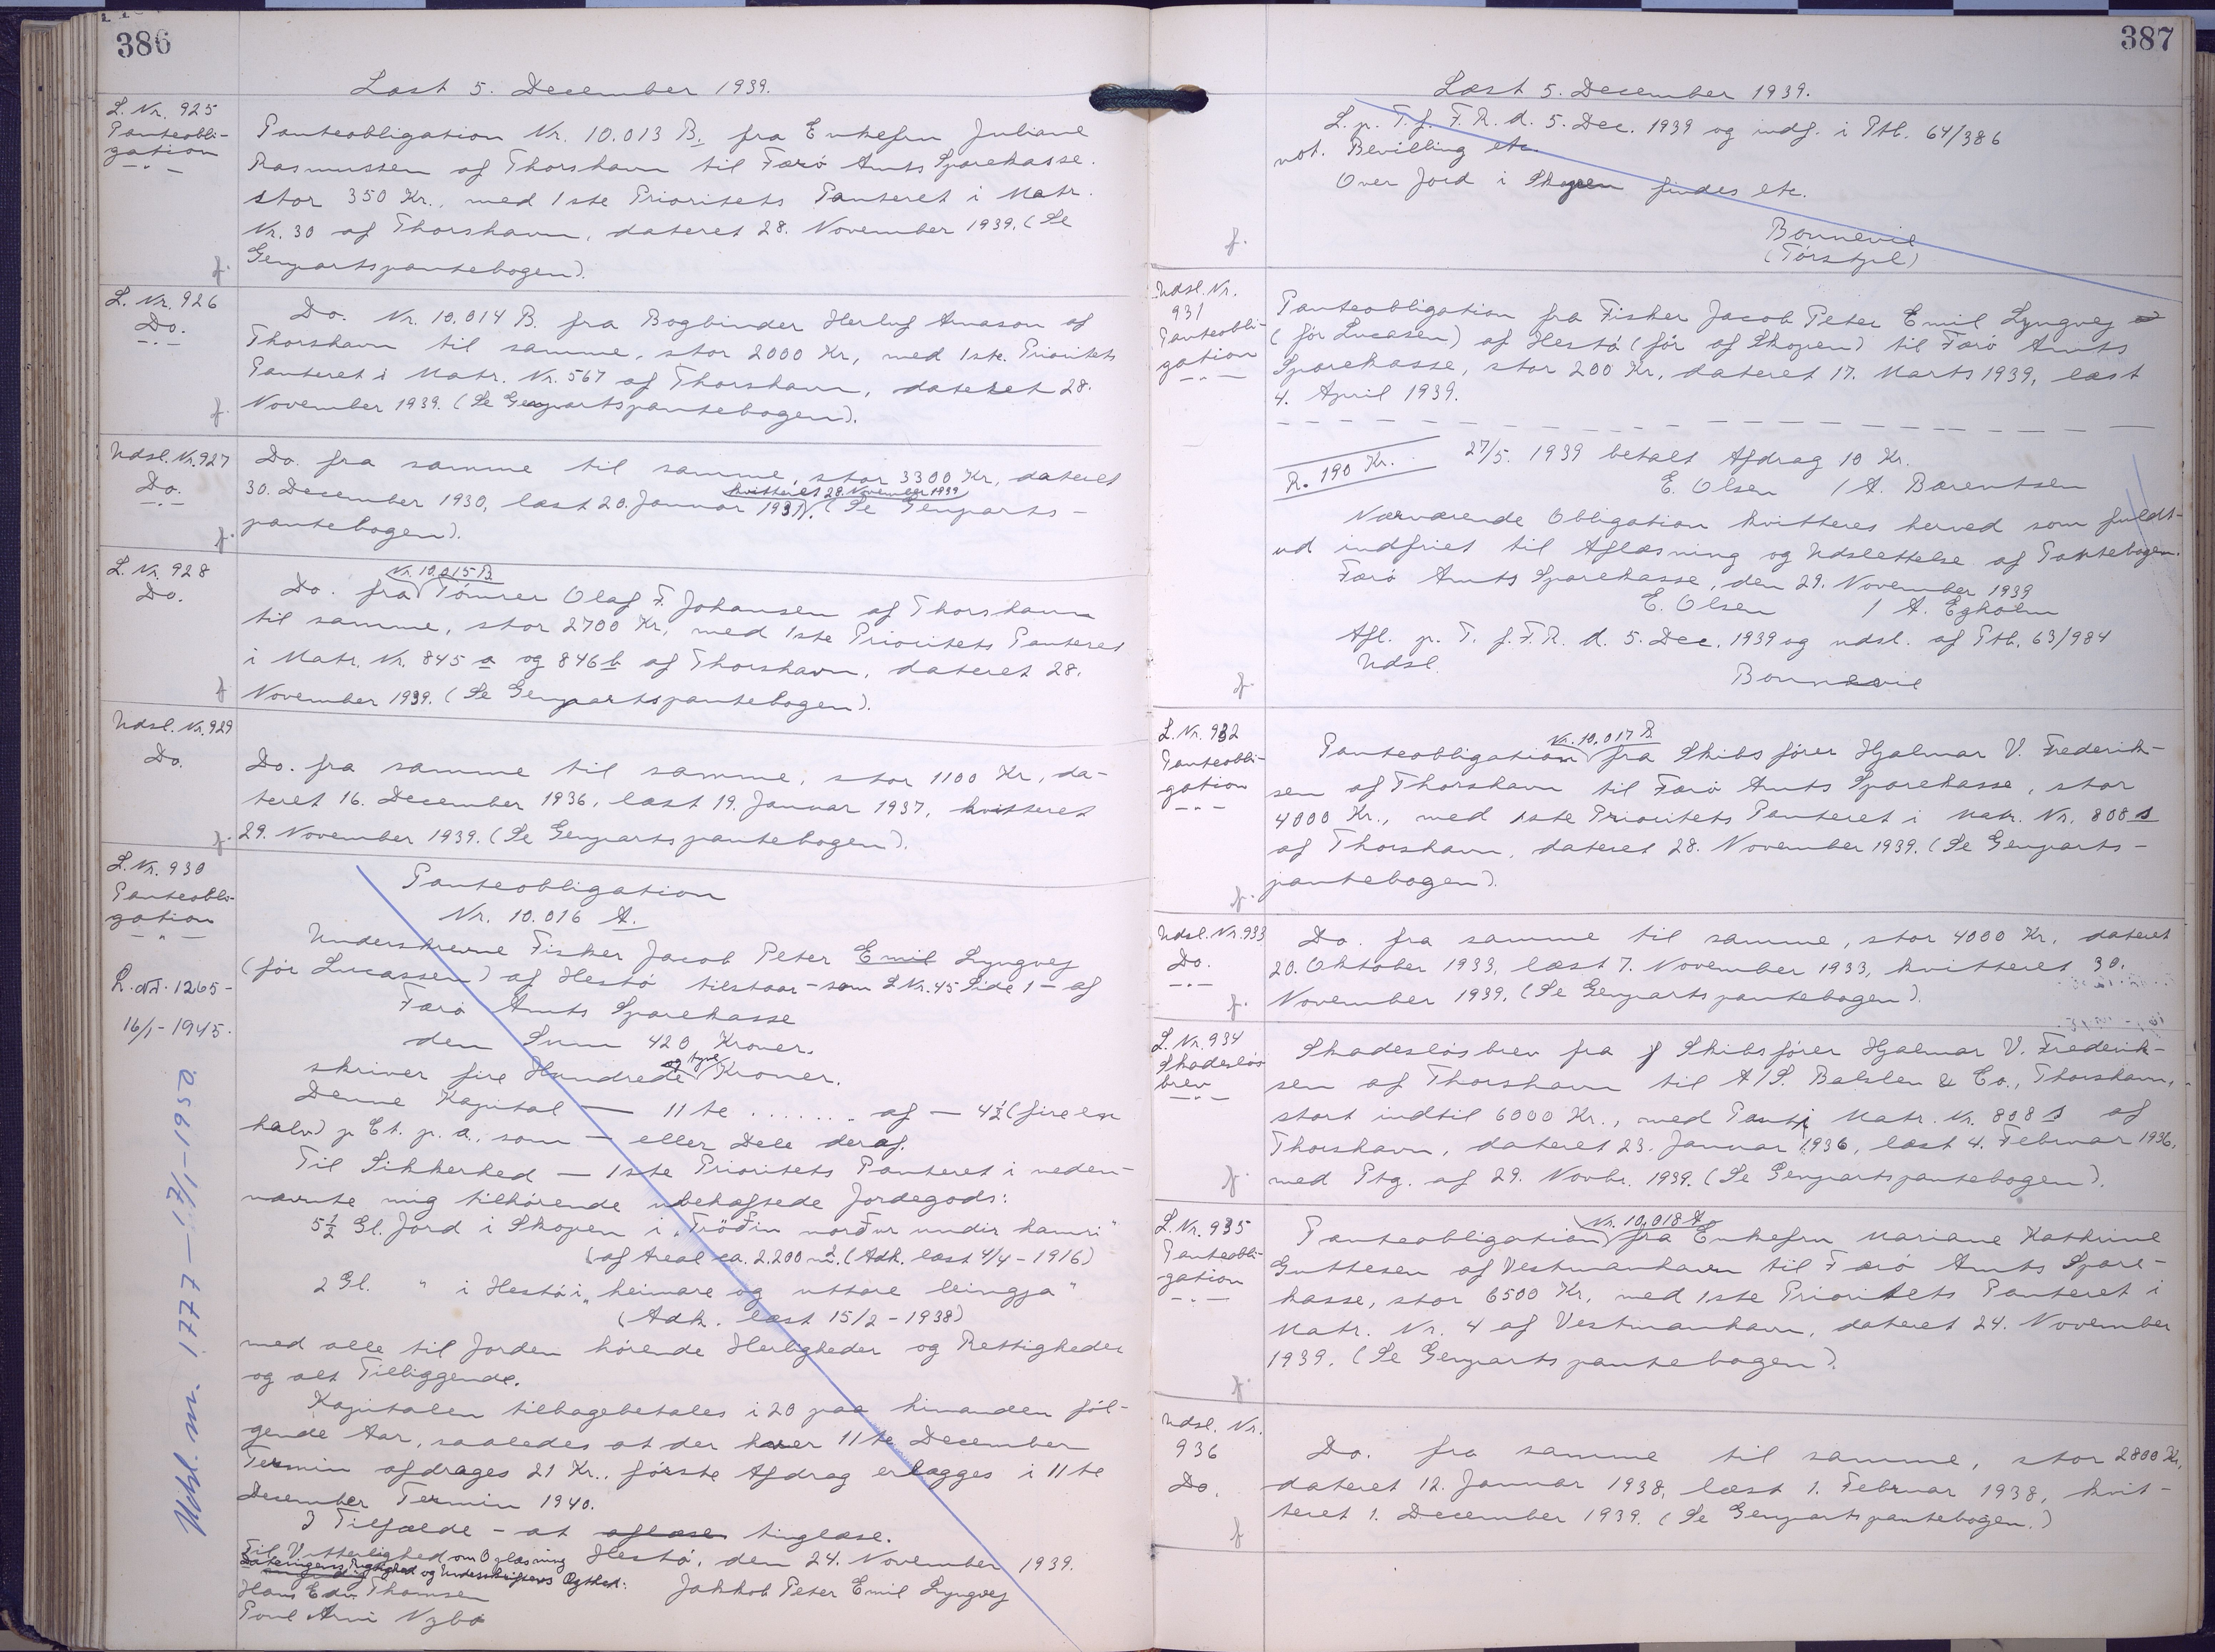 386
Læst 5. December 1939.
L. Nr. 925
Panteobli-
gation
Panteobligation Nr. 10.013 B. fra Enkefru Juliane
Rasmussen af Thorshavn til Færö Amts Sparekasse.
stor 350 Kr., med 1ste Prioritets Panteret i Matr.
Nr. 30 af Thorshavn, dateret 28. November 1939. (Se
Genpartspantebogen).
f.
L. Nr. 926
Do.
Do. Nr. 10.014 B. fra Bogbinder Herluf Arnason af
Thorshavn til samme, stor 2000 Kr, med 1ste. Prioritets
Panteret i Matr. Nr. 567 af Thorshavn, dateret 28.
November 1939. (Se Genpartspantebogen).
f.
Udsl. Nr. 927
Do.
Do. fra samme til samme, stor 3300 Kr, dateret
30. December 1930, læst 20. Januar 1931, kvitteret 28. November 1939. (Se Genparts-
pantebogen).
f.
L. Nr. 928
Do.
Do. fra Nr. 10.015 B Tömrer Olaf F. Johansen af Thorshavn
til samme, stor 2700 Kr, med 1ste Prioritets Panteret
i Matr. Nr. 845 a og 846 b af Thorshavn, dateret 28.
November 1939. (Se Genpartspantebogen).
f
Udsl. Nr. 929
Do.
Do. fra samme til samme, stor 1100 Kr, da-
teret 16. December 1936, læst 19. Januar 1937, kvitteret
29. November 1939. (Se Genpartspantebogen).
f.
L. Nr. 930
Panteobli-
gation
16/1-1945.
Udsl. m. 1777 - 17/1-1950.
Panteobligation
Nr. 10.016 A.
Underskrevne Fisker Jacob Peter Emil Lyngvej
(för Lucassen) af Hestö tilstaar - som L Nr. 45 Side 1 - af
Færö Amts Sparekasse
den Sum 420 Kroner.
skriver fire Hundrede og tyve Kroner.
Denne Kapital - 11te ....... af - 4½ (fire en
halv) p Ct. p. a., som - eller Dele deraf.
Til Sikkerhed - 1ste Prioritets Panteret i neden-
nævnte mig tilhörende ubehæftede Jordegods:
5½ Gl. Jord i Skopen i „Tröðin norður undir hamri"
(af Areal ca. 2.200 m². (Adk. læst 4/4 - 1916)
2 Gl. " i Hestö i „heimare og uttare leingja"
(Adk. læst 15/2 - 1938)
med alle til Jorden hörende Herligheder og Rettigheder
og alt Tilliggende.
Kapitalen tilbagebetales i 20 paa hinanden föl-
gende Aar, saaledes at der hver 11te December
Termin afdrages 21 Kr., förste Afdrag erlægges i 11te
December Termin 1940.
I Tilfælde - at aflæse tinglæse.
Hestö, den 24. November 1939.
Til Vitterlighed om Oplæsning
Dateringens Rigtighed og Underskriftens Ægthed:
Jakkob Peter Emil Lyngvej
Hans Edv. Thomsen
Poul Arni Nybö
387
Læst 5. December 1939.
L. p. T. f. F. R. d. 5. Dec. 1939 og indf. i Ptb. 64/386
not. Bevilling etc.
Over Jord i Skopen findes etc.
Bonnevie
f.
Udsl. Nr.
931
Panteobli-
gation
Panteobligation fra Fisker Jacob Peter Emil Lyngvej
(för Lucasen) af Hestö (för af Skopen) til Færö Amts
Sparekasse, stor 200 Kr, dateret 17. Marts 1939, læst
4. April 1939.
R. 190 Kr.
27/5. 1939 betalt Afdrag 10 Kr.
E. Olsen / A. Bærentsen
Nærværende Obligation kvitteres herved som fuldt-
ud indfriet til Aflæsning og Udslettelse af Pantebogen.
Færö Amts Sparekasse, den 29. November 1939
E. Olsen / A. Egholm
Afl. p. T. f. F. R. d. 5. Dec. 1939 og udsl. af Ptb. 63/984
Udsl.
Bonnevie
f.
L. Nr. 932
Panteobli-
gation
Panteobligation Nr. 10.017 B fra Skibsförer Hjalmar V. Frederik-
sen af Thorshavn til Færö Amts Sparekasse, stor
4000 Kr., med 1ste Prioritets Panteret i Matr. Nr. 808 s
af Thorshavn, dateret 28. November 1939. (Se Genparts-
pantebogen).
f.
Udsl. Nr. 933
Do.
Do. fra samme til samme, stor 4000 Kr, dateret
20. Oktober 1933, læst 7. November 1933, kvitteret 30.
November 1939. (Se Genpartspantebogen).
f.
L. Nr. 934
Skadeslös
brev
Skadeslösbrev fra Skibsförer Hjalmar V. Frederik-
sen af Thorshavn til A/S. Balslev & Co., Thorshavn,
stort indtil 6000 Kr., med Pant i Matr. Nr. 808 s af
Thorshavn, dateret 23. Januar 1936, læst 4. Februar 1936,
med Ptg. af 29. Novbr. 1939. (Se Genpartspantebogen).
f.
L. Nr. 935
Panteobli-
gation
Panteobligation Nr. 10.018 A. fra Enkefru Mariane Kathrine
Guttesen af Vestmanhavn til Færö Amts Spare-
kasse, stor 6500 Kr, med 1ste Prioritets Panteret i
Matr. Nr. 4 af Vestmanhavn, dateret 24. November
1939. (Se Genpartspantebogen).
f.
Udsl. Nr.
936
Do.
Do. fra samme til samme, stor 2800 Kr,
dateret 12. Januar 1938, læst 1. Februar 1938, kvit-
teret 1. December 1939. (Se Genpartspantebogen.)
f